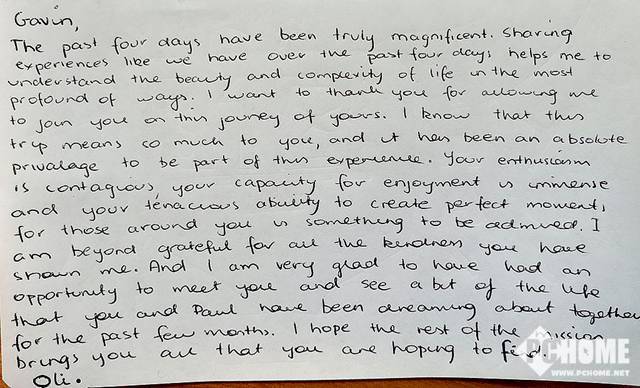 Gavin,
The past four days have been truly magnificent. Sharing
experiences like we have over the past four days helps me to
understand the beauty and complexity of life in the most
profound of ways. I want to thank you for allowing me
to join you on this jouney of yours. I know that this
trip means so much to you, and it has been an absolute
privalage to be part of this experience. Your enthusiasm
is contagious, your capacity for enjoyment is immense
and your tenacious ability to create perfect moments
for those around you is something to be admired. I
am beyond grateful for all the kindness you have
shown me. And I am very glad to have had an
opportunity to meet you and see a bit of the life
that you and Paul have been dreaming about together
for the past few months. I hope the rest of the mission
brings you all that you are hoping to find.
Oli.
PCHOME
WWW.PCHOME.NET